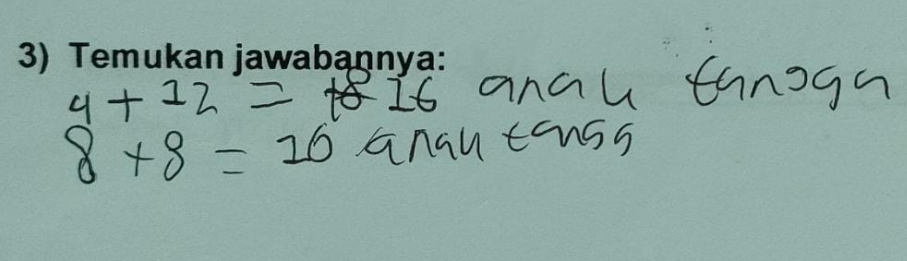 3) Temukan jawabannya:
4 + 12 = 16 anak tangga
8 + 8 = 16 anak tangg